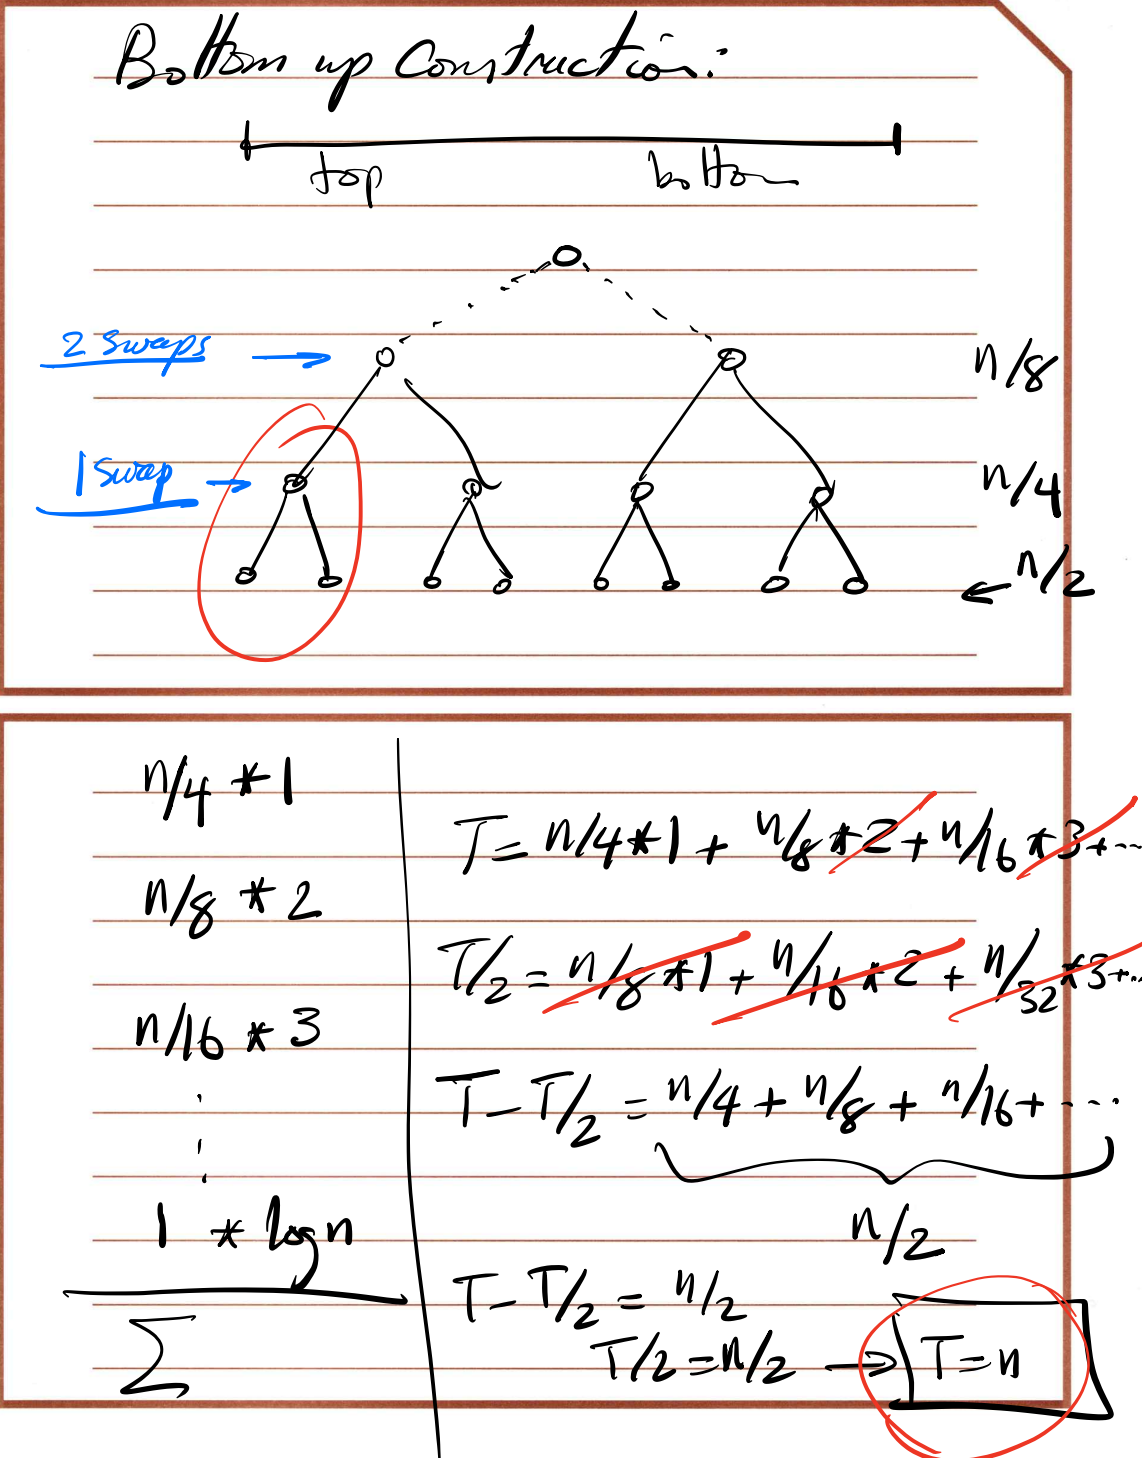 Bottom up Construction:
top bottom
2 swaps n/8
1 swap n/4
n/2
n/4 * 1
n/8 * 2
n/16 * 3
1 * log n
Σ
T = n/4 * 1 + n/8 * 2 + n/16 * 3 + ...
T/2 = n/8 * 1 + n/16 * 2 + n/32 * 3 + ...
T - T/2 = n/4 + n/8 + n/16 + ....
n/2
T - T/2 = n/2
T/2 = n/2 → T = n